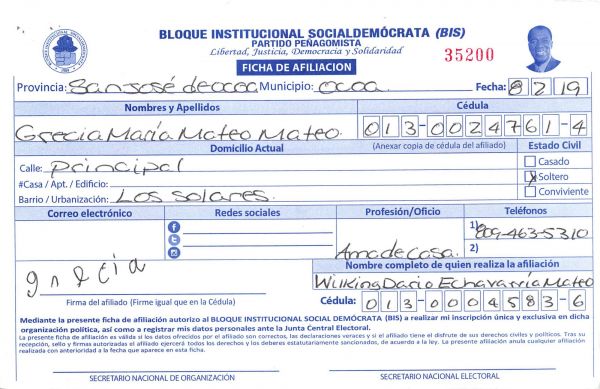 BLOQUE INSTITUCIONAL SOCIALDEMÓCRATA (BIS)
PARTIDO PEÑAGOMISTA
Libertad, Justicia, Democracia y Solidaridad
35200
FICHA DE AFILIACION
Provincia: San José de ocoa Municipio: Ocoa. Fecha: 8 2 19
Nombres y Apellidos Cédula
Grecia María Mateo Mateo. 013-0024761-4
Domicilio Actual (Anexar copia de cédula del afiliado) Estado Civil
Calle: Principal Casado
#Casa / Apt. / Edificio: Soltero
Barrio / Urbanización: Los solares. Conviviente
Correo electrónico Redes sociales Profesión/Oficio Teléfonos
1) 809-463-5310
Ama de casa. 2)
Nombre completo de quien realiza la afiliación
Wilking Dario Echavarría Mateo
Firma del afiliado (Firme igual que en la Cédula) Cédula: 013-0004583-6
Mediante la presente ficha de afiliación autorizo al BLOQUE INSTITUCIONAL SOCIAL DEMÓCRATA (BIS) a realizar mi inscripción única y exclusiva en dicha
organización política, así como a registrar mis datos personales ante la Junta Central Electoral.
La presente ficha de afiliación es válida si los datos ofrecidos por el afiliado son correctos, las declaraciones veraces y si el afiliado tiene el disfrute de sus derechos civiles y políticos. Tras su
recepción, sello y firmas autorizadas el afiliado ejercerá todos los derechos y los deberes estatutariamente sancionados, de acuerdo a la ley. La presente afiliación anula cualquier afiliación
realizada con anterioridad a la fecha que aparece en esta ficha.
SECRETARIO NACIONAL DE ORGANIZACIÓN SECRETARIO NACIONAL ELECTORAL